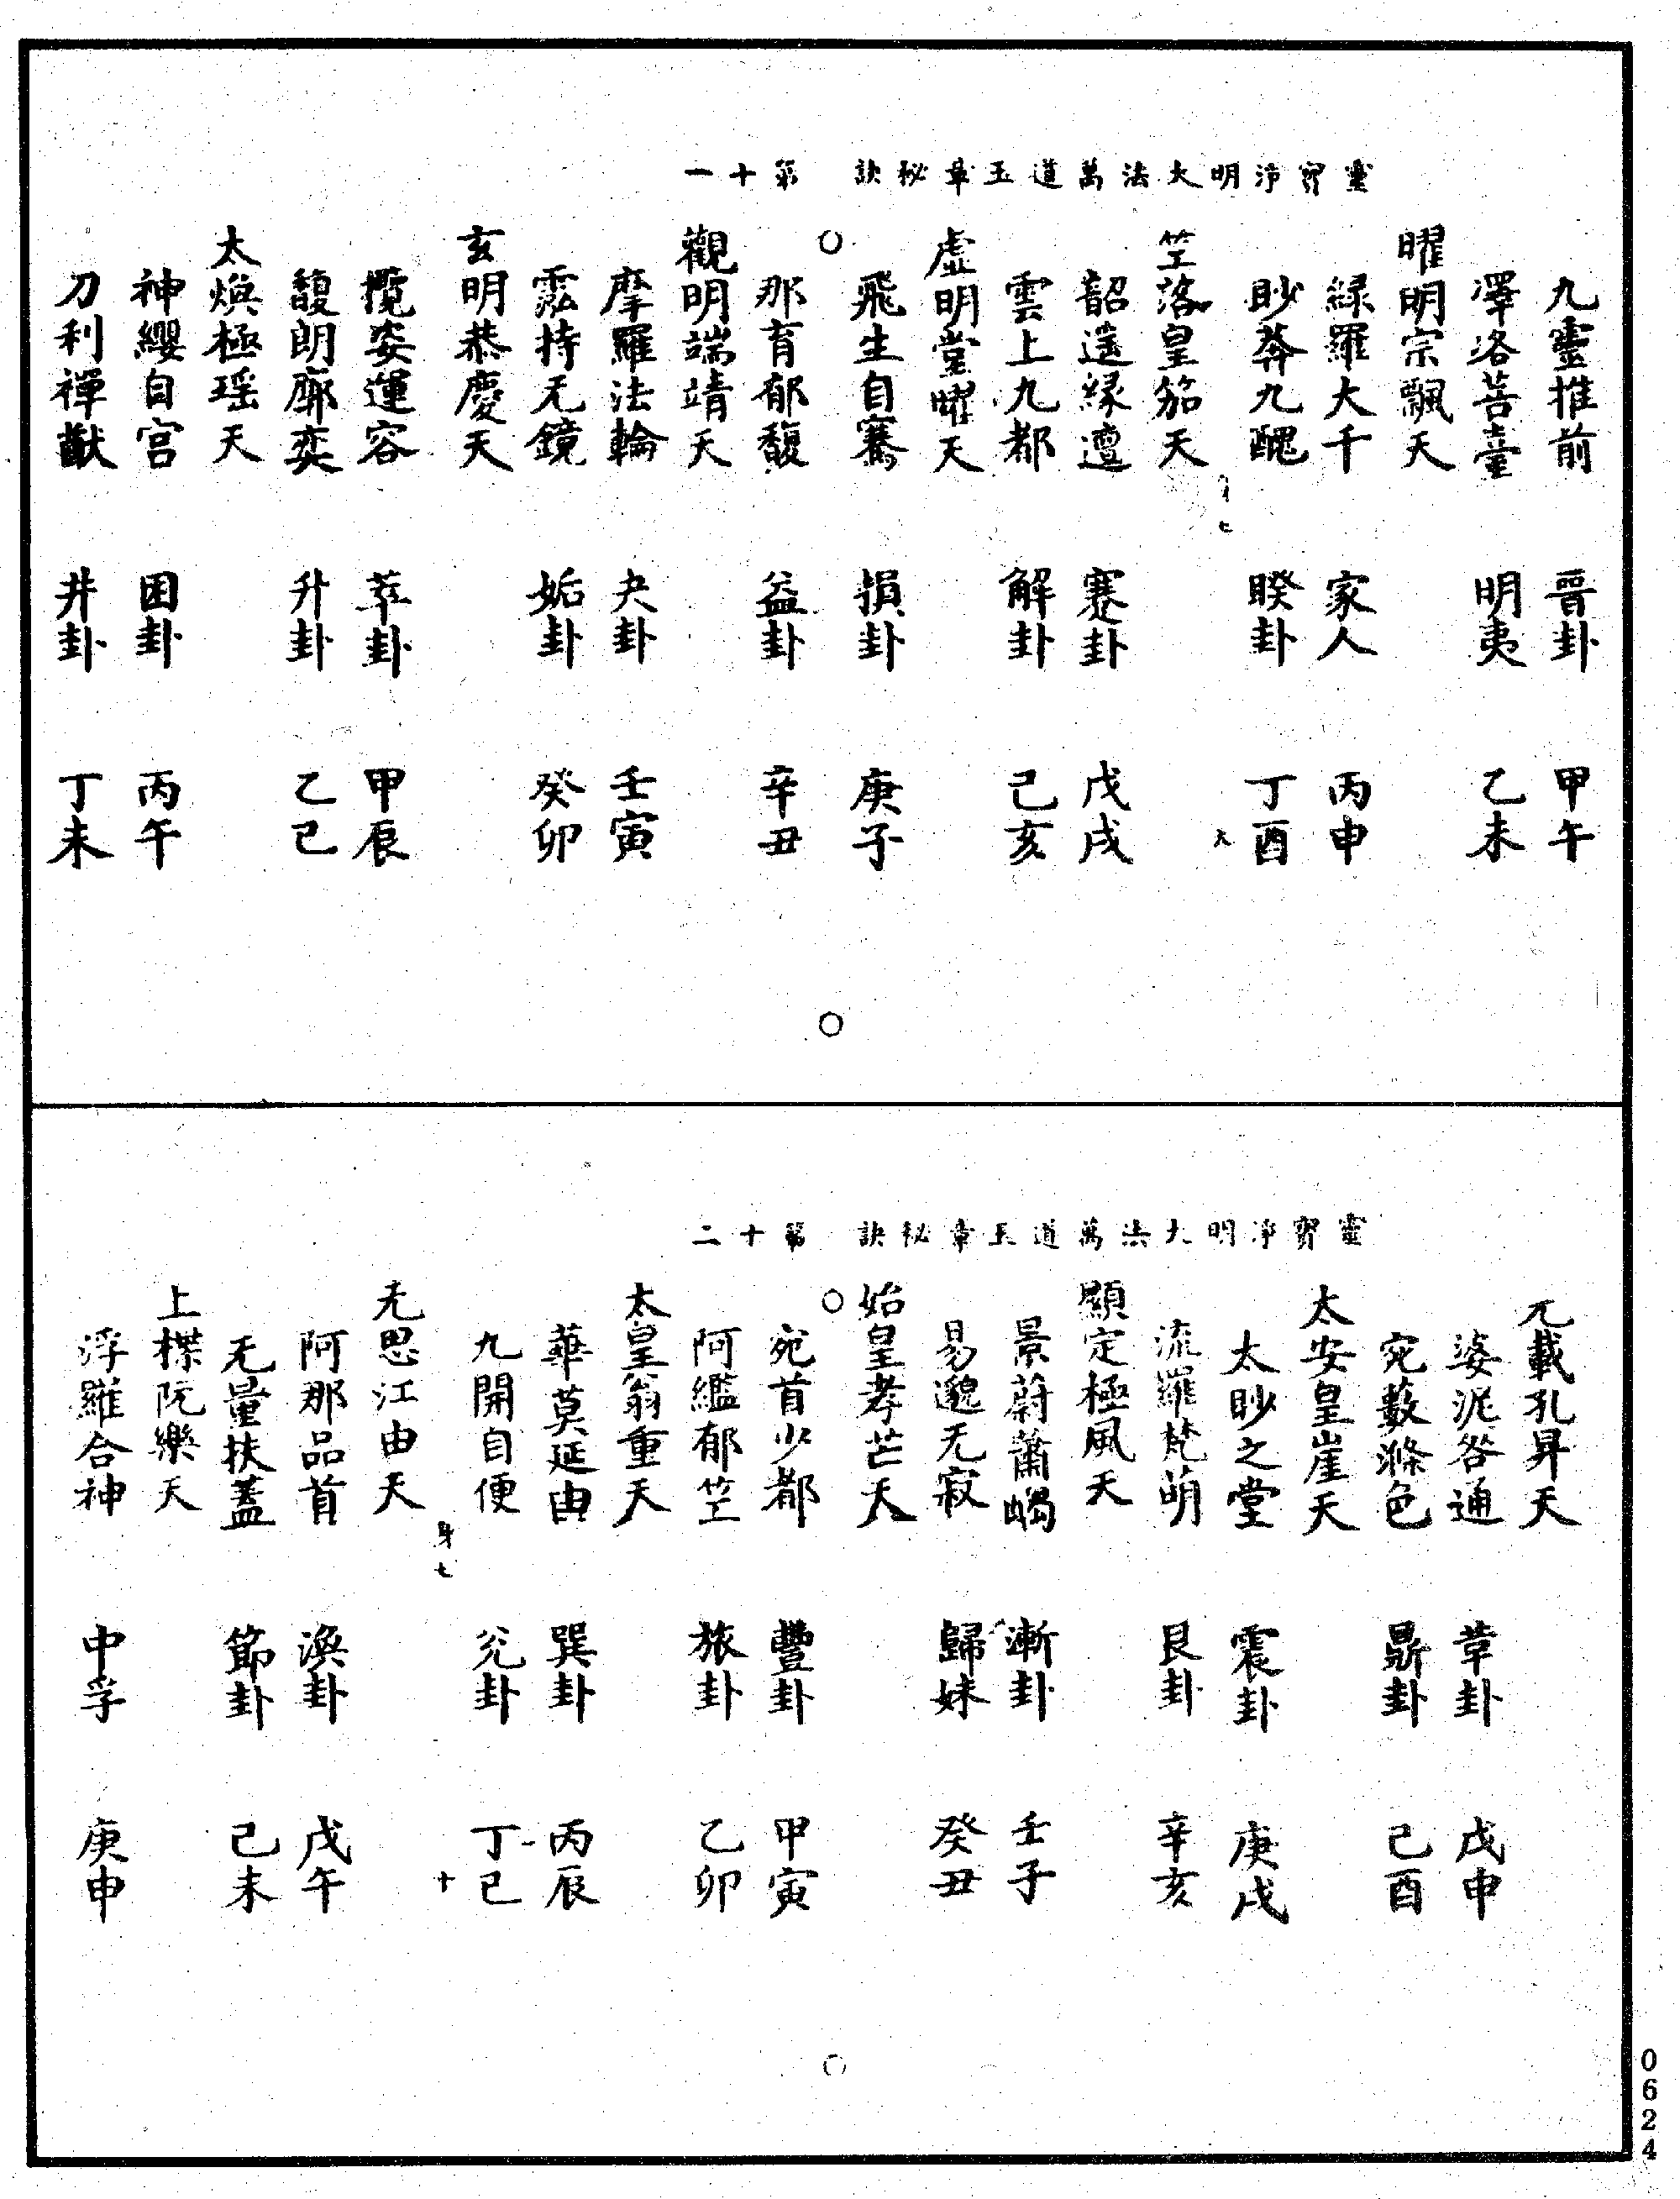 靈寳淨明大法萬道玉章秘訣　第十一
九靈推前　晋卦　甲午
澤洛菩臺　明夷　乙未
曜明宗飄天
緑羅大千　家人　丙申
眇莽九醜　睽卦　丁酉
竺落皇笳天
韶遥縁邅　蹇卦　戊戌
雲上九都　解卦　己亥
虚明堂曜天
飛生自騫　損卦　庚子
那育郁馥　益卦　辛丑
觀明端靖天
摩羅法輪　夬卦　壬寅
霐持无鏡　姤卦　癸卯
玄明恭慶天
攬姿運容　萃卦　甲辰
馥朗廓奕　升卦　乙巳
太焕極瑶天
神纓自宫　困卦　丙午
刀利禪猷　井卦　丁未
靈寳淨明大法萬道玉章秘訣　第十二
元載孔昇天
婆泥咎通　革卦　戊申
宛藪滌色　鼎卦　己酉
太安皇崖天
太眇之堂　震卦　庚戌
流羅梵萌　艮卦　辛亥
顯定極風天
景蔚蕭嵑　漸卦　壬子
易邈无寂　歸妹　癸丑
始皇孝芒天
宛首少都　豐卦　甲寅
阿繿郁竺　旅卦　乙卯
太皇翁重天
華莫延由　巽卦　丙辰
九開自便　兊卦　丁巳
十
无思江由天
阿那品首　渙卦　戊午
无量扶蓋　節卦　己未
上楪阮樂天
浮羅合神　中孚　庚申
0624